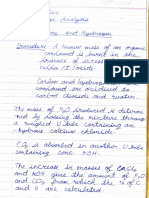 Analysis
and Hydrogen
Procedure: A known mass of an organic
compound is burnt in the
presence of excess
oxide
Carbon and hydrogen
compound are oxidised to
carbon dioxide and water
The mass of H2O produced is determi
ned by passing the mixture through
a weighed U tube containing an
hydrous calcium chloride.
CO2 is absorbed in another U tube
containing conc. KOH
The increase in masses of CaCl2
and KOH give the amount of H2O
and CO2 from which the % of C
and H are calculated